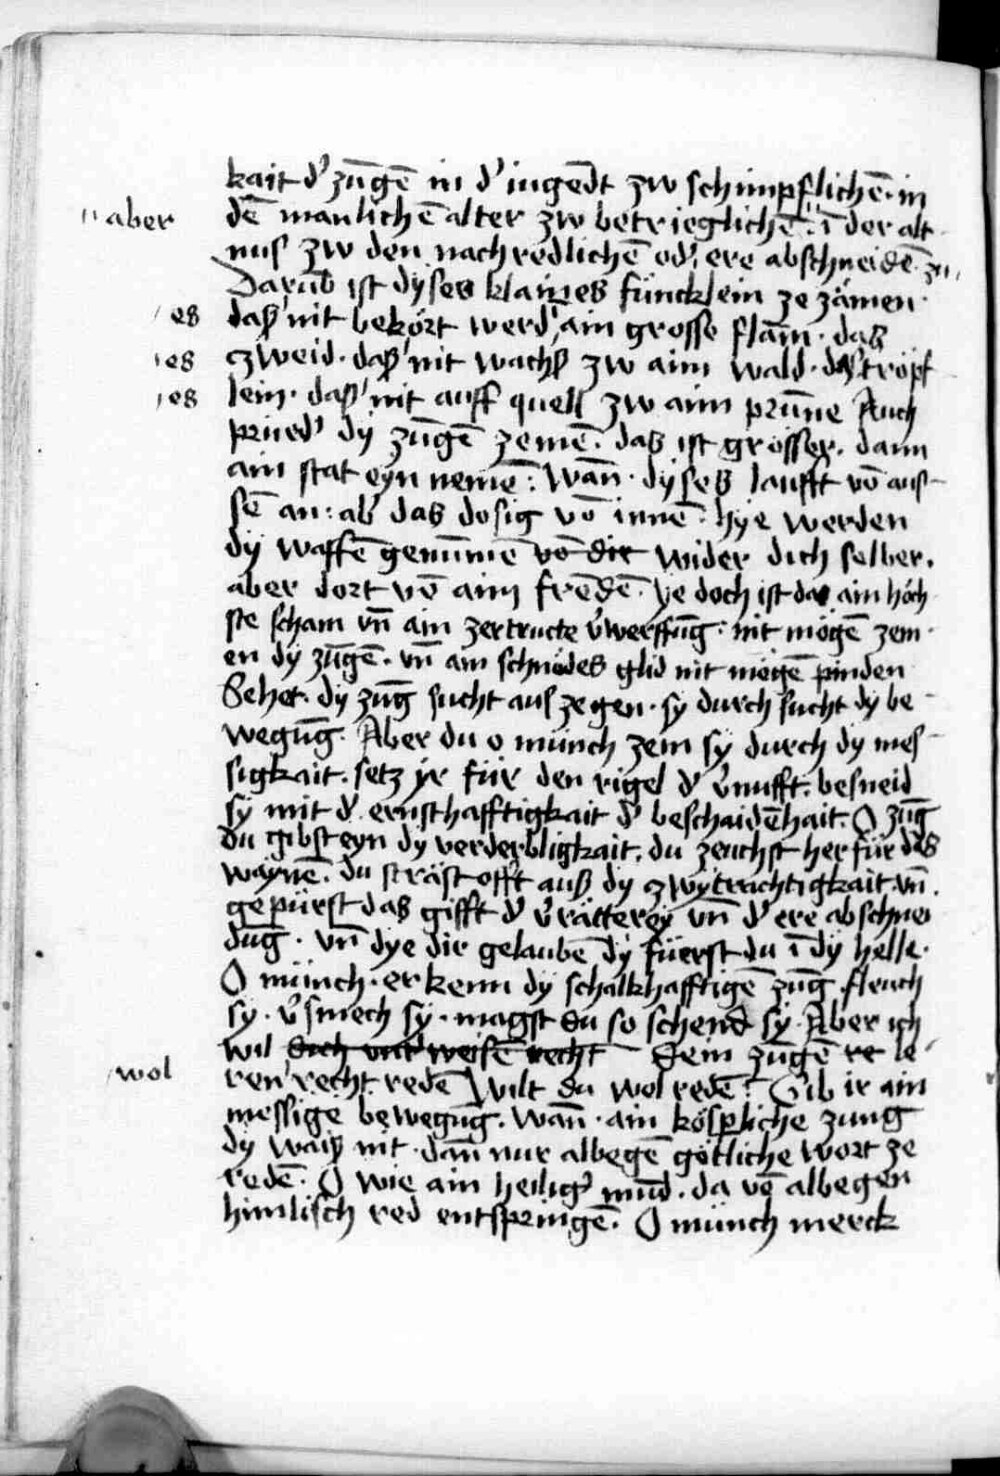 kait d' zūgē in d' iugēdt zw schimpflichē · in
" aber
dē manlichē alter zw betrieglichē : " ī der alt
nus zw den nachredlichē od' ere abschneidē zū
Darūb ist dyses klaines füncklein ze zämen ·
' es
daß ' nit bekört werd' ain grosse flām · das
' es
zweid · daß ' nit wachß zw aim wald · das tröpf
' es
lein · daß ' nit auff quell zw aim prūne Auch
prüed' dy zūgē zemē · das ist grösser · dann
ain stat eyn nemē : wān · dyses laufft vō aus
sē an : ab' das dosig vō innē · hye werden
dy waffē genūmē vō dir wider dich selber ·
aber dort vō aim frēdē · ye doch ist das ain höch
ste scham vn̄ ain zertructe v'werffūg : nit mögē zem
en dy zūgē · vn̄ ain schnödes glid nit mögē pinden
Sehet · dy zūg sucht aus zegen · sy durch sucht dy be
wegūg · Aber du o münch zem sy durch dy mes
sigkait · setz yr für den rigel d' v'nufft · besneid
sy mit d' ernsthafftigkait d' beschaidēhait · O zūg
du gibst eyn dy verderbligkait · du zeuchst herfür des
waynē · du sträst offt auß dy zwytrachtigkait · vn̄
gepürst das gifft d' v'rätterey vn̄ d' ere abschnei
dūg · vn̄ dye dir gelaubē dy füerst du ī dy helle ·
O münch · erkenn dy schalkhafftigē zūg · fleuch
sy · v'smech sy · magst du so schend sy · Aber ich
wil dich vnt'weisē recht dein zūgē re le
' wol
ren ' recht redē Wilt du wol redē ? Gib ir ain
messige bewegūg · wān · ain kösplichē zung
dy waiß nit · dān nur albegē götliche wort ze
redē · O wie ain heilig' mūd · da vō albegen
himlisch red entspringē · O münch merck